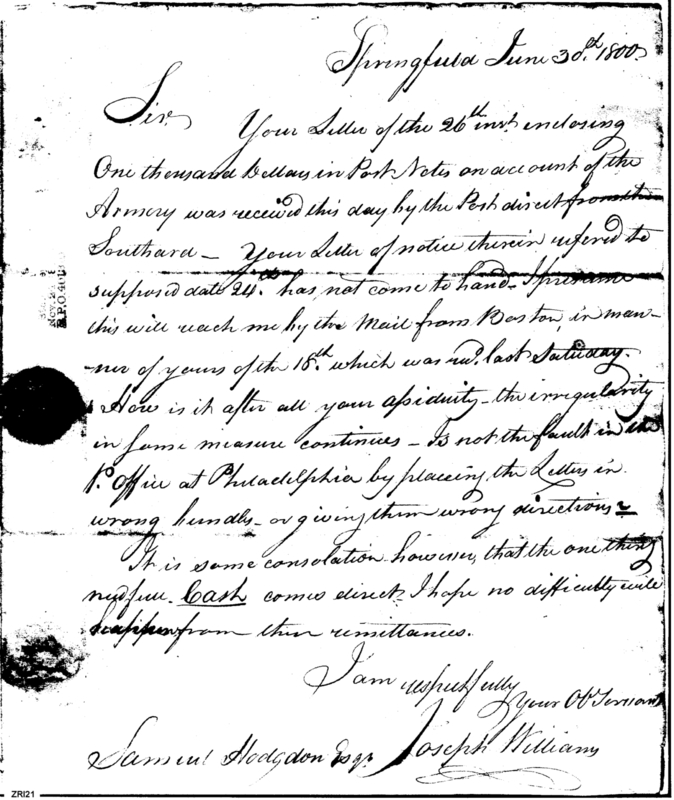 Springfield June 30th. 1800.
Sir
Your Letter of the 26th inst. enclosing
One thousand Dollars in Post Notes on account of the
Armory was received this day by the Post direct from the
Southard – Your Letter of notice therein refered to
supposed date 24th. has not come to hand – I presume
this will reach me by the Mail from Boston, in man-
ner of yours of the 18th. which was recd. last Saturday.
How is it after all your assiduity – the irregularity
in some measure continues – Is not the fault in the
P. office at Philadelphia by placing the Letters in
wrong bundles – or giving them wrong directions?
It is some consolation however, that the one thing
needful Cash comes direct – I hope no difficulty will
happen from these remittances.
I am respectfully
your Ob Servant
Joseph Williams
Samuel Hodgdon Esqr
ZRI21